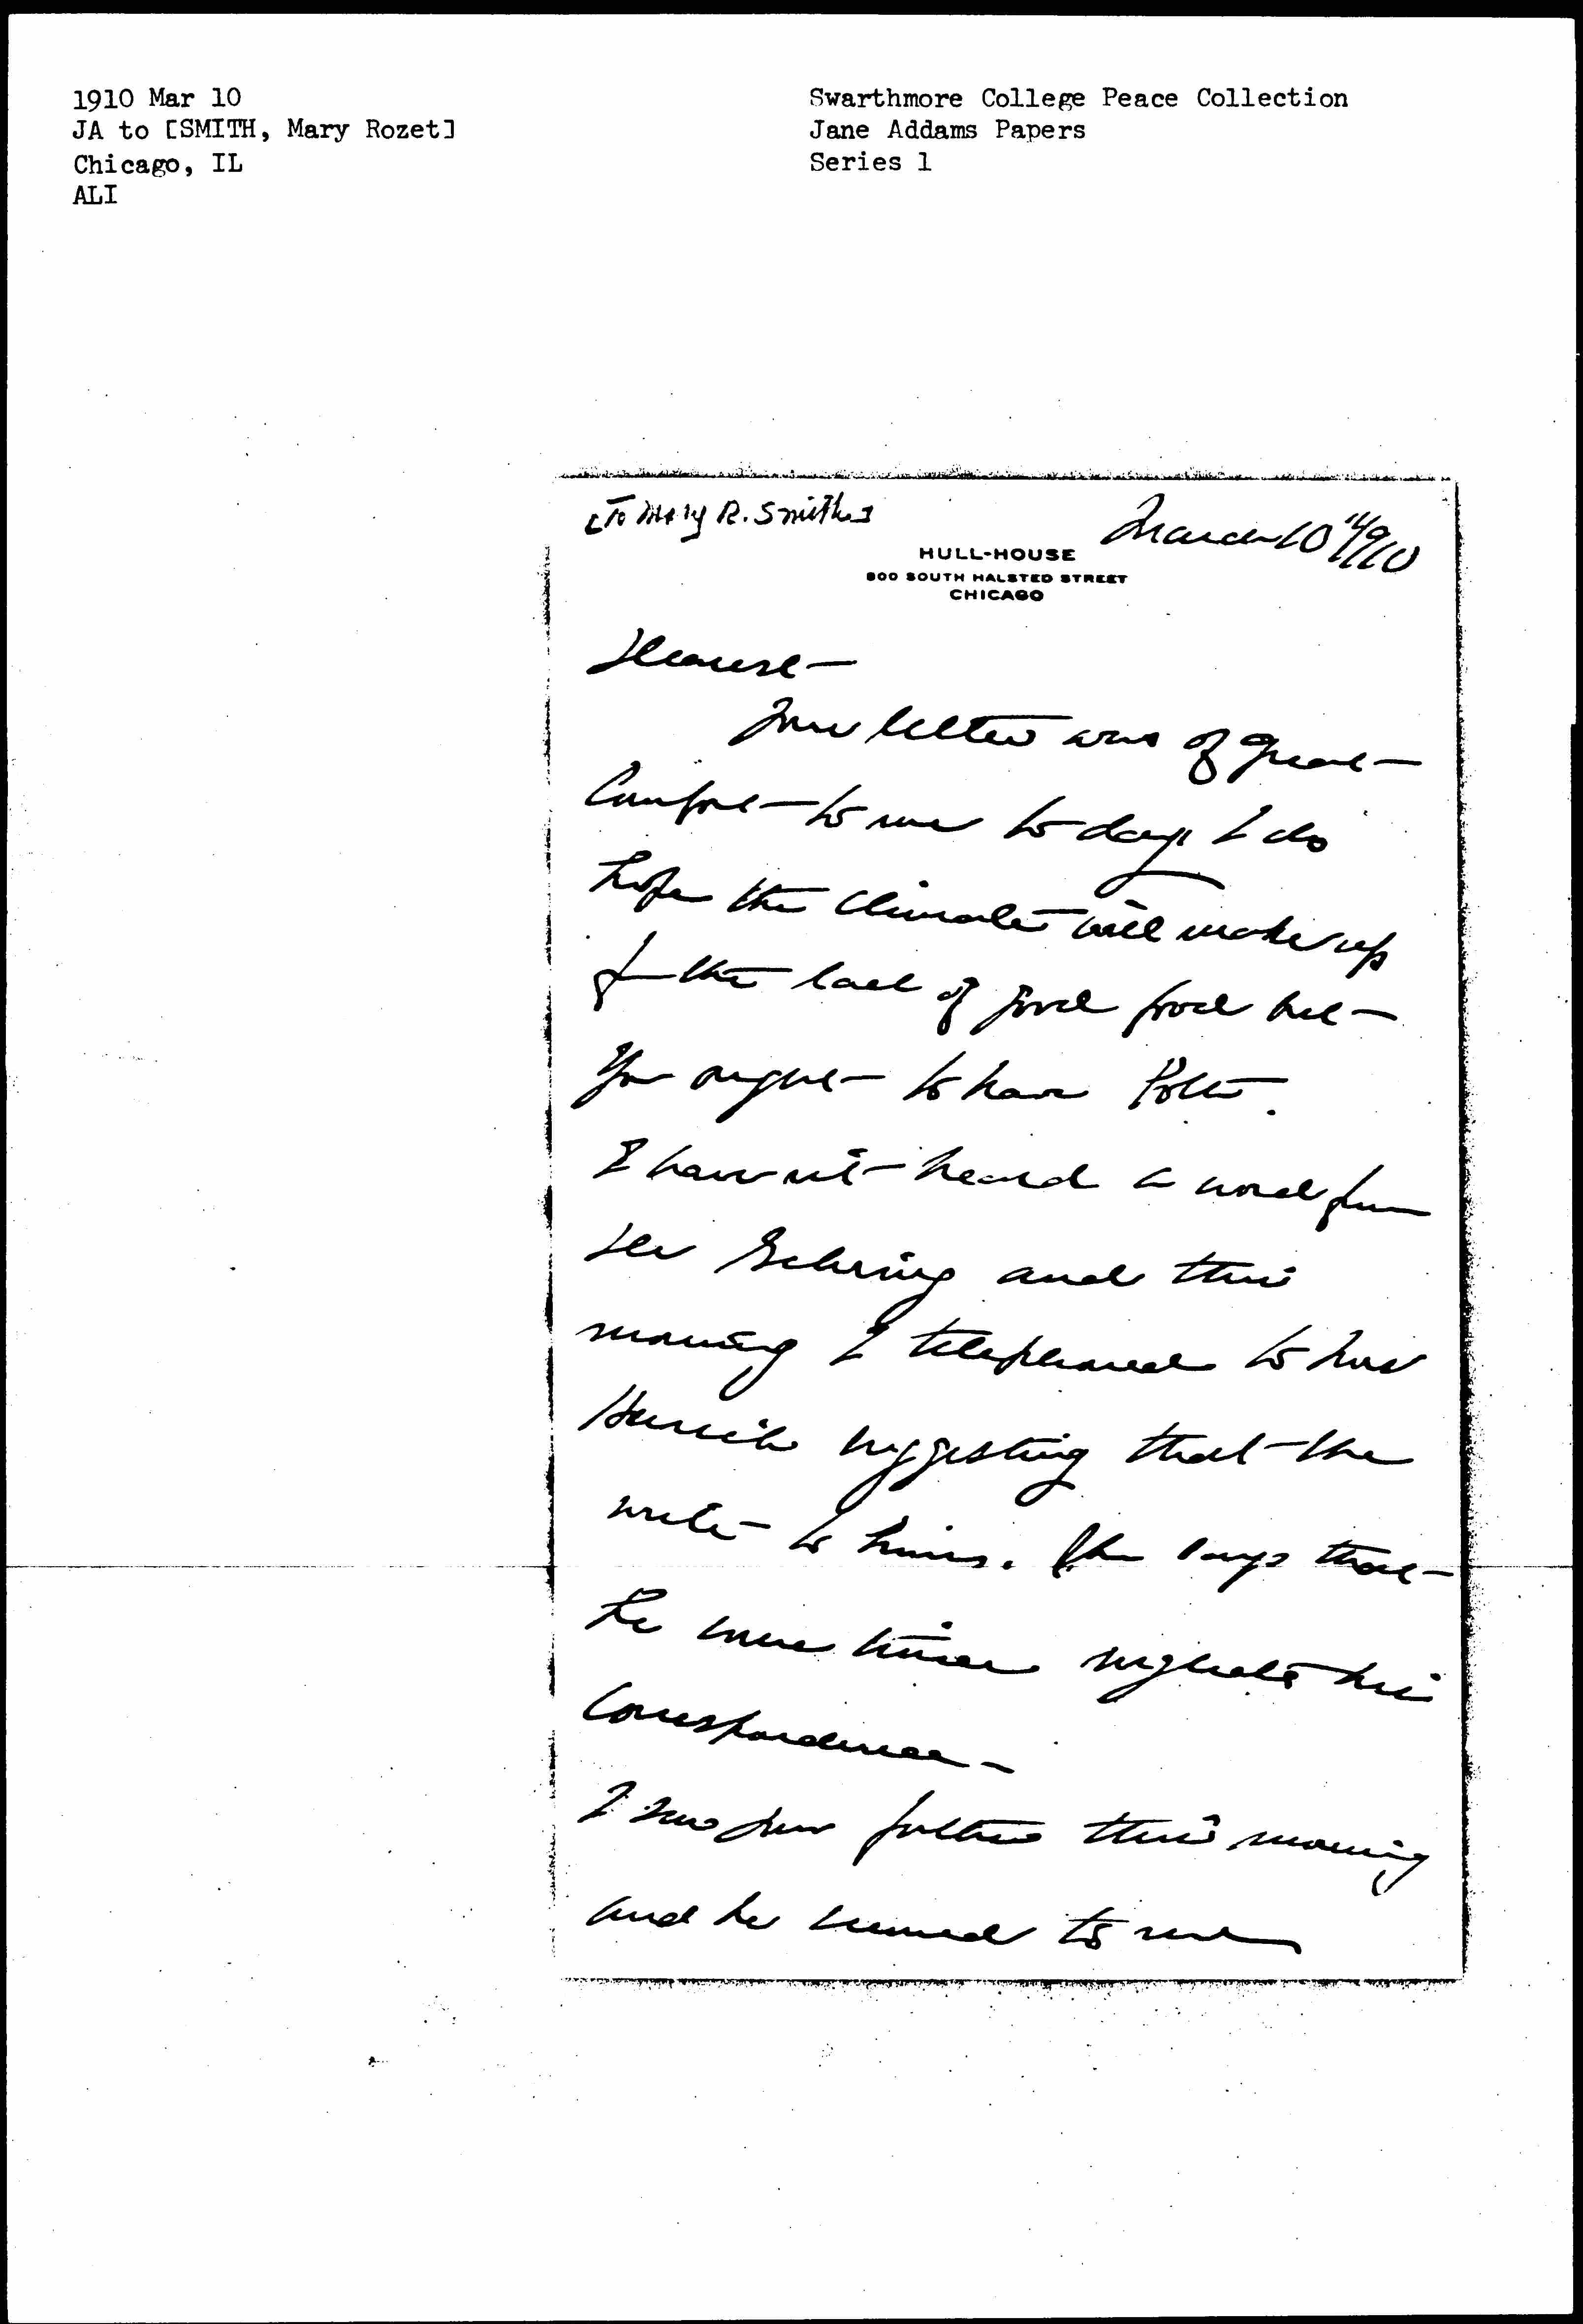 1910 Mar 10
JA to [SMITH, Mary Rozet]
Chicago, IL
ALI
Swarthmore College Peace Collection
Jane Addams Papers
Series 1
[To Mary R. Smith]
March 10" 1910
HULL-HOUSE
800 SOUTH HALSTED STREET
CHICAGO
Dearest —
Your letter was of great
comfort to me to day, I do
hope the climate will make up
for the lack of good food but
you ought to have both.
I have not heard a word from
Dr Gehring and this
morning I telephoned to
suggesting that she
write to him. She says that
he some times neglects his
correspondence —
I saw your father this morning
and he seemed to me